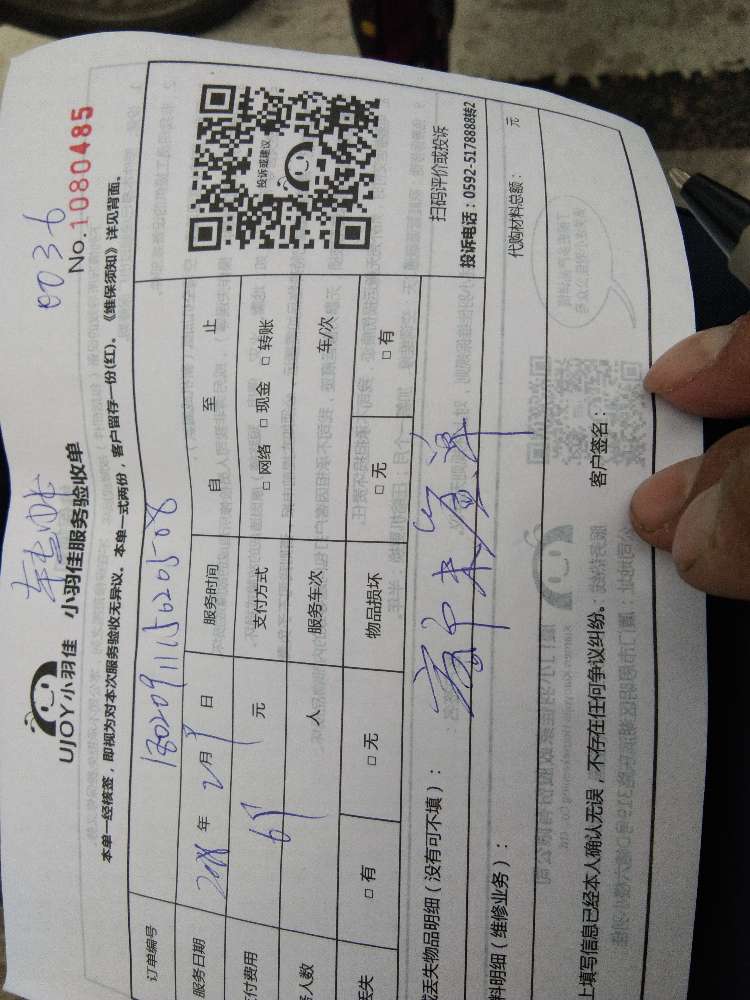 0036
No.1080485
UJOY小羽佳 小羽佳服务验收单
本单一经核签，即视为对本次服务验收无异议。本单一式两份，客户留存一份(红)。《维保须知》详见背面。
订单编号
服务日期 2018 年 2 月 9 日 服务时间 自 至 止
付费用 元 支付方式 □ 网络 □ 现金 □ 转账
人数 人 服务车次 车/次
丢失 □ 有 □ 无 物品损坏 □ 无 □ 有
投诉或建议
扫码评价或投诉
投诉电话：0592-5178888转2
丢失物品明细（没有可不填）：
客户未签单
料明细（维修业务）： 代购材料总额： 元
上填写信息已经本人确认无误，不存在任何争议纠纷。 客户签名：